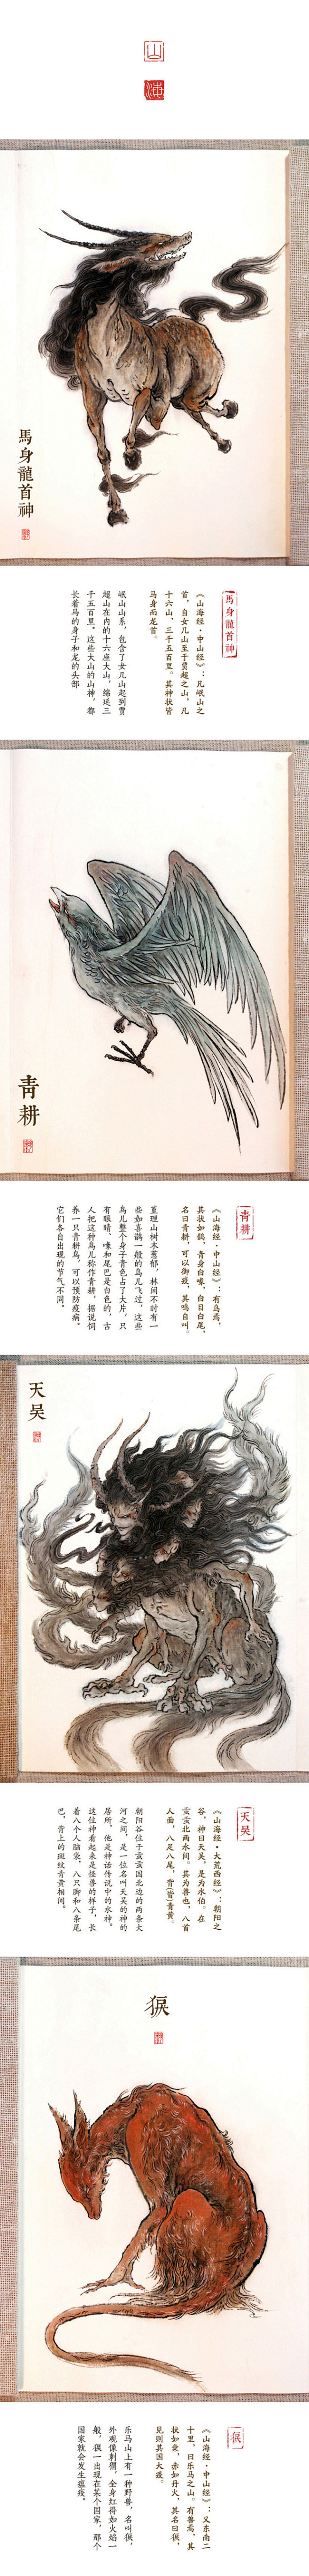 山
海
馬身龍首神
馬身龍首神
《山海经·中山经》：凡岷山之
首，自女几山至于贾超之山，凡
十六山，三千五百里。其神状皆
马身而龙首。
岷山山系，包含了女几山起到贾
超山在内的十六座大山，绵延三
千五百里。这些大山的山神，都
长着马的身子和龙的头部
青耕
青耕
《山海经·中山经》：有鸟焉，
其状如鹊，青身白喙，白目白尾，
名曰青耕，可以御疫，其鸣自叫。
堇理山树木葱郁，林间不时有一
些如喜鹊一般的鸟儿飞过，这些
鸟儿整个身子青色占了大片，只
有眼睛、喙和尾巴是白色的，古
人把这种鸟儿称作青耕，据说饲
养一只青耕鸟，可以预防疫病。
它们各自出现的节气不同。
天吴
天吴
《山海经·大荒西经》：朝阳之
谷，神曰天吴，是为水伯。在
䖝䖝北两水间。其为兽也，八首
人面，八足八尾，背(皆)青黄。
朝阳谷位于䖝䖝国北边的两条大
河之间，是一位名叫天吴的神的
居所，他是神话传说中的水神。
这位神看起来是怪兽的样子，长
着八个人脑袋，八只脚和八条尾
巴，背上的斑纹青黄相间。
㺅
㺅
《山海经·中山经》：又东南二
十里，曰乐马之山。有兽焉，其
状如彙，赤如丹火，其名曰㺅，
见则其国大疫。
乐马山上有一种野兽，名叫㺅，
外观像刺猬，全身红得如火焰一
般，㺅一出现在某个国家，那个
国家就会发生瘟疫。